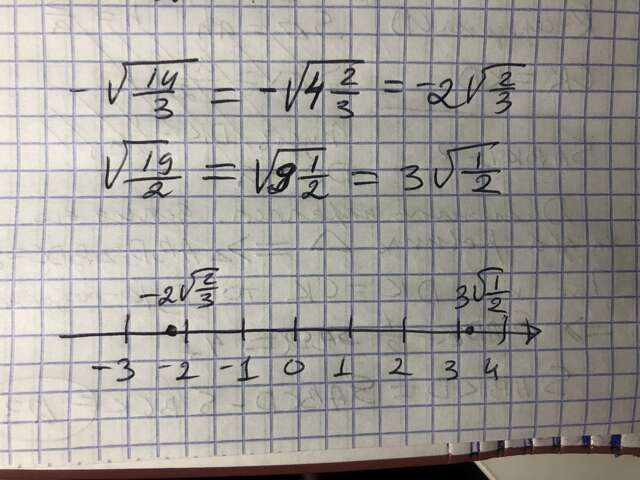 -√14/3 = -√4 2/3 = -2√2/3
√19/2 = √9 1/2 = 3√1/2
-2√2/3 3√1/2
-3 -2 -1 0 1 2 3 4